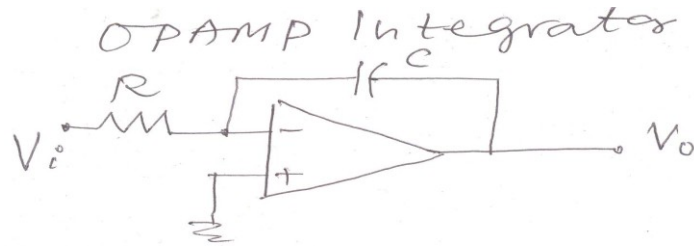 OPAMP Integrator
C
R
Vi
−
+
Vo